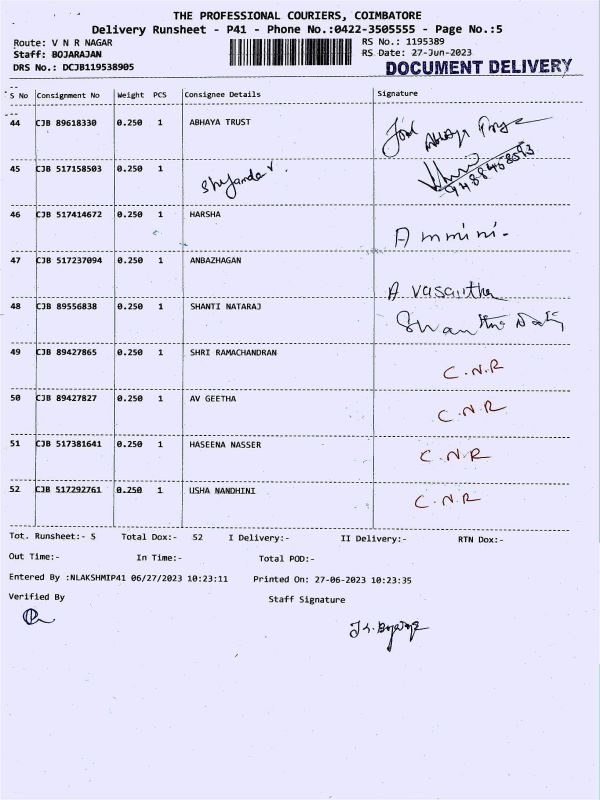 THE PROFESSIONAL COURIERS, COIMBATORE
Delivery Runsheet - P41 - Phone No.:0422-3505555 - Page No.:5
Route: V N R NAGAR RS No.: 1195389
Staff: BOJARAJAN RS Date: 27-Jun-2023
DRS No.: DCJB119538905 DOCUMENT DELIVERY
S No Consignment No Weight PCS Consignee Details Signature
44 CJB 89618330 0.250 1 ABHAYA TRUST
45 CJB 517158503 0.250 1 9488458593
46 CJB 517414672 0.250 1 HARSHA Ammini-
47 CJB 517237094 0.250 1 ANBAZHAGAN A. Vasantha
48 CJB 89556838 0.250 1 SHANTI NATARAJ
49 CJB 89427865 0.250 1 SHRI RAMACHANDRAN C.N.R
50 CJB 89427827 0.250 1 AV GEETHA C.N.R
51 CJB 517381641 0.250 1 HASEENA NASSER C.N.R
52 CJB 517292761 0.250 1 USHA NANDHINI C.N.R
Tot. Runsheet:- 5 Total Dox:- 52 I Delivery:- II Delivery:- RTN Dox:-
Out Time:- In Time:- Total POD:-
Entered By :NLAKSHMIP41 06/27/2023 10:23:11 Printed On: 27-06-2023 10:23:35
Verified By Staff Signature